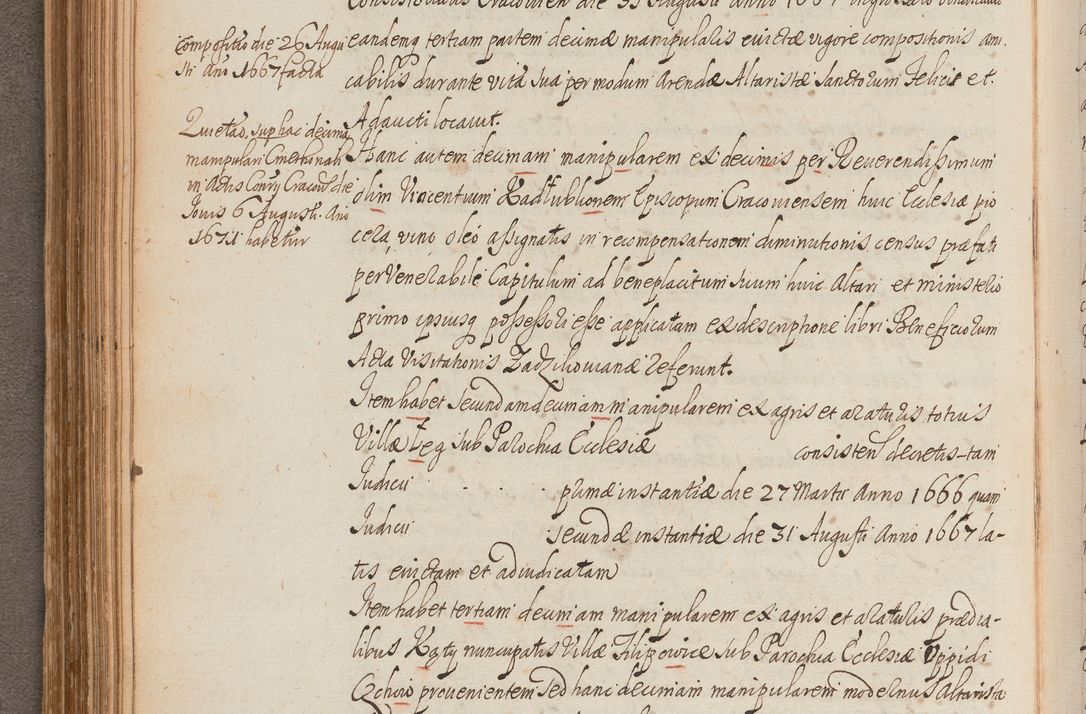 Compositio die 26 Augu
sti Ano 1667 facta
Quietao. sup hac decima
manipulari Cmethonali
in Actis Consry Cracovie die
Jovis 6 Augusti. Ano
1671 habetur
eandemq tertiam partem decimæ manipulalis evictæ vigore compositionis ami
cabilis durante vita sua per modum arendæ Altaristæ Sanctorum Felicis et.
Adaucti locavit.
Hanc autem decimam manipularem ex decimis per Reverendissimum
olim Vincentium Kadłubkonem Episcopum Cracoviensem huic Ecclesiæ pio
cera, vino oleo assignatis in recompensationem diminutionis census præfati
per Venerabile Capitulum ad beneplacitum suum huic Altari et ministerio
primo ipsiusq possessori esse applicatam ex descriptione libri Beneficiorum
Acta Visitationis Zadzikovianæ referunt.
Item habet secundam decimam manipularem ex agris et araturis totius
Villæ Łeg sub Parochia Ecclesiæ consisten decretis tam
Iudicii primæ instantiæ die 27 Martii Anno 1666 quam
Iudicii secundæ instantiæ die 31 Augusti Anno 1667 la-
tis evictam et adiudicatam
Item habet tertiam decimam manipularem ex agris et araturis prædia-
libus Kąty nuncupatis Villæ Filipowice sub Parochia Ecclesiæ Oppidi
provenientem sed hanc decimam manipularem modernus Altarista